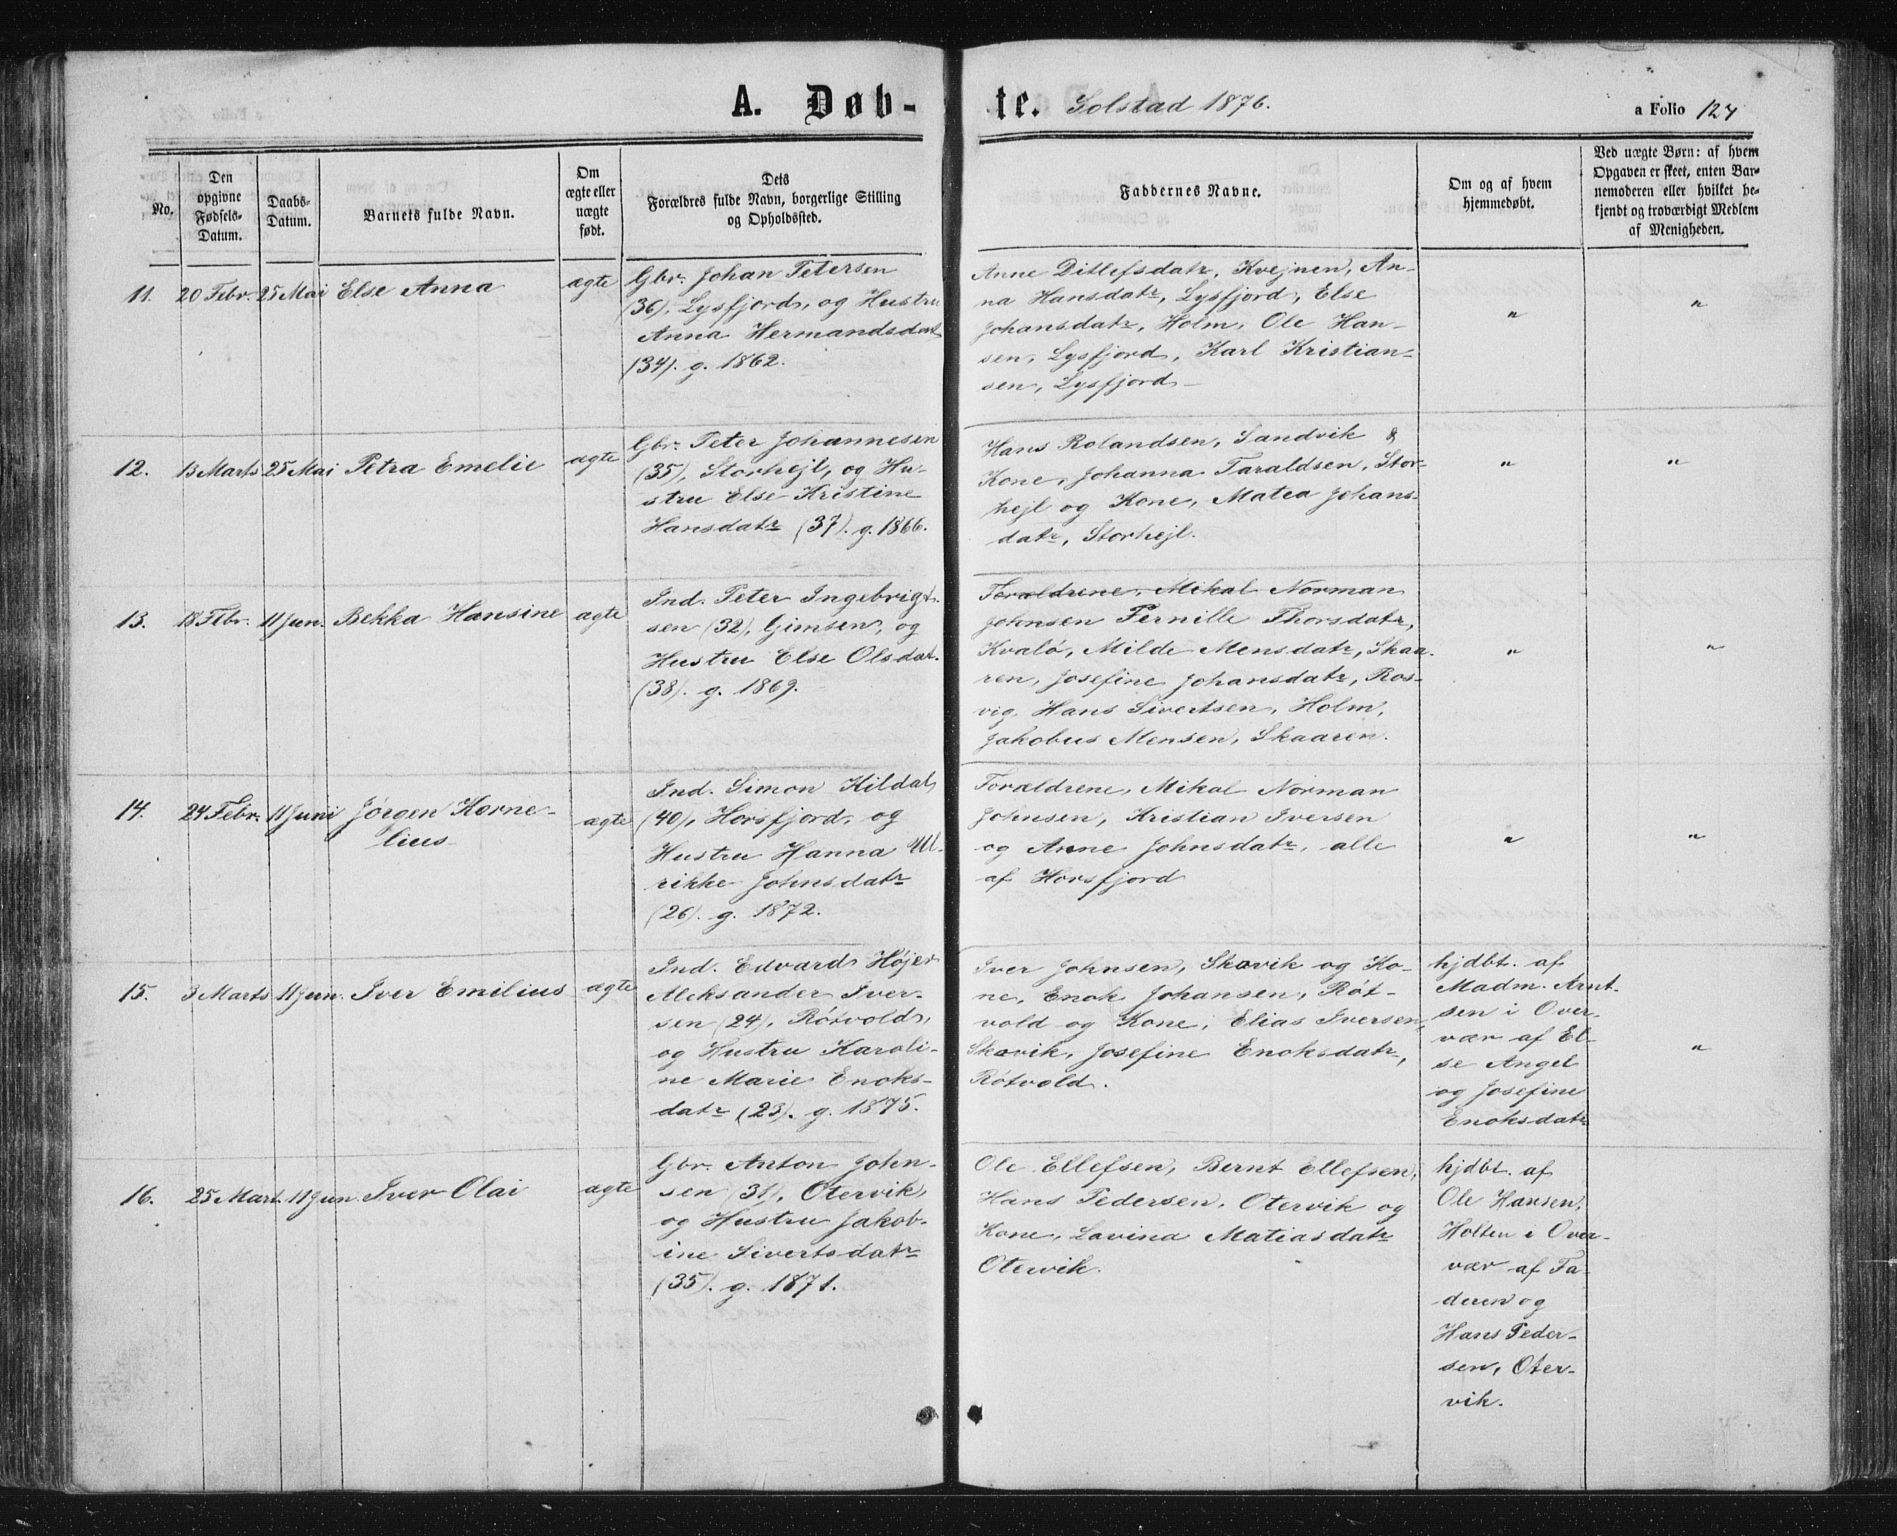 A. Døb-
te. Solstad 1876.
a Folio 124
No.
Den
opgivne
Fødsels-
Datum.
Daabs-
Datum.
Barnets fulde Navn.
Om
ægte eller
uægte
født.
Dets
Forældres fulde Navn, borgerlige Stilling
og Opholdssted.
Faddernes Navne.
Om og af hvem
hjemmedøbt.
Ved uægte Børn: af hvem
Opgaven er skeet, enten Bar-
nemoderen eller hvilket be-
kjendt og troværdigt Medlem
af Menigheden.
11. 20 Febr. 25 Mai Else Anna ægte
Gbr. Johan Petersen
(36), Lysfjord, og Hustru
Anna Hermandsdat
(34). g. 1862.
Anne Ditlefsdatr, Kvejnen, An-
na Hansdatr, Lysfjord, Else
Johansdatr, Holm, Ole Han-
sen, Lysfjord, Karl Kristian-
sen, Lysfjord
"
"
12. 13 Marts 25 Mai Petra Emelie ægte
Gbr. Peter Johannesen
(35), Storhejl, og Hu-
stru Else Kristine
Hansdatr (37). g. 1866.
Hans Rolandsen, Sandvik &
Kone, Johanna Taraldsen, Stor-
hejl og Kone, Matea Johans-
datr, Storhejl.
"
"
13. 18 Febr. 11 Jun. Bekka Hansine ægte
Ind. Peter Ingebrigt-
sen (32), Gimsen, og
Hustru Else Olsdat.
(38). g. 1869.
Forældrene, Mikal Norman
Johnsen Pernille Thorsdatr,
Kvalö, Milde Mensdatr, Skaa-
ren, Josefine Johansdatr, Ros-
vig, Hans Sivertsen, Holm,
Jakobus Mensen, Skaaren.
"
"
14. 24 Febr. 11 Juni Jörgen Korne-
lius ægte
Ind. Simon Kildal
(40), Horsfjord, og
Hustru Hanna Ul-
rikke Johnsdatr
(26). g. 1872.
Forældrene, Mikal Norman
Johnsen, Kristian Iversen
og Anne Johnsdatr, alle
af Horsfjord
"
"
15. 3 Marts 11 Jun. Iver Emilius ægte
Ind. Edvard Höjer
Aleksander Iver-
sen (24), Rötvold,
og Hustru Karoli-
ne Marie Enoks-
datr (23). g. 1875.
Iver Johnsen, Skavik og Ko-
ne, Enok Johansen, Röt-
vold og Kone, Elias Iversen,
Skavik, Josefine Enoksdatr,
Rötvold.
hjdbt. af
Madm. Arnt-
sen i Over-
vær af El-
se Angel
og Josefine
Enoksdatr
"
16. 25 Mart. 11 Jun. Iver Olai ægte
Gbr. Anton John-
sen (31), Otervik,
og Hustru Jakob-
ine Sivertsdatr
(35). g. 1871.
Ole Ellefsen, Bernt Ellefsen,
Hans Pedersen, Otervik og
Kone, Lavina Matiasdatr
Otervik.
hjdbt. af
Ole Hansen,
Holten i Over-
vær af Fa-
deren og
Hans Peder-
sen, Oter-
vik.